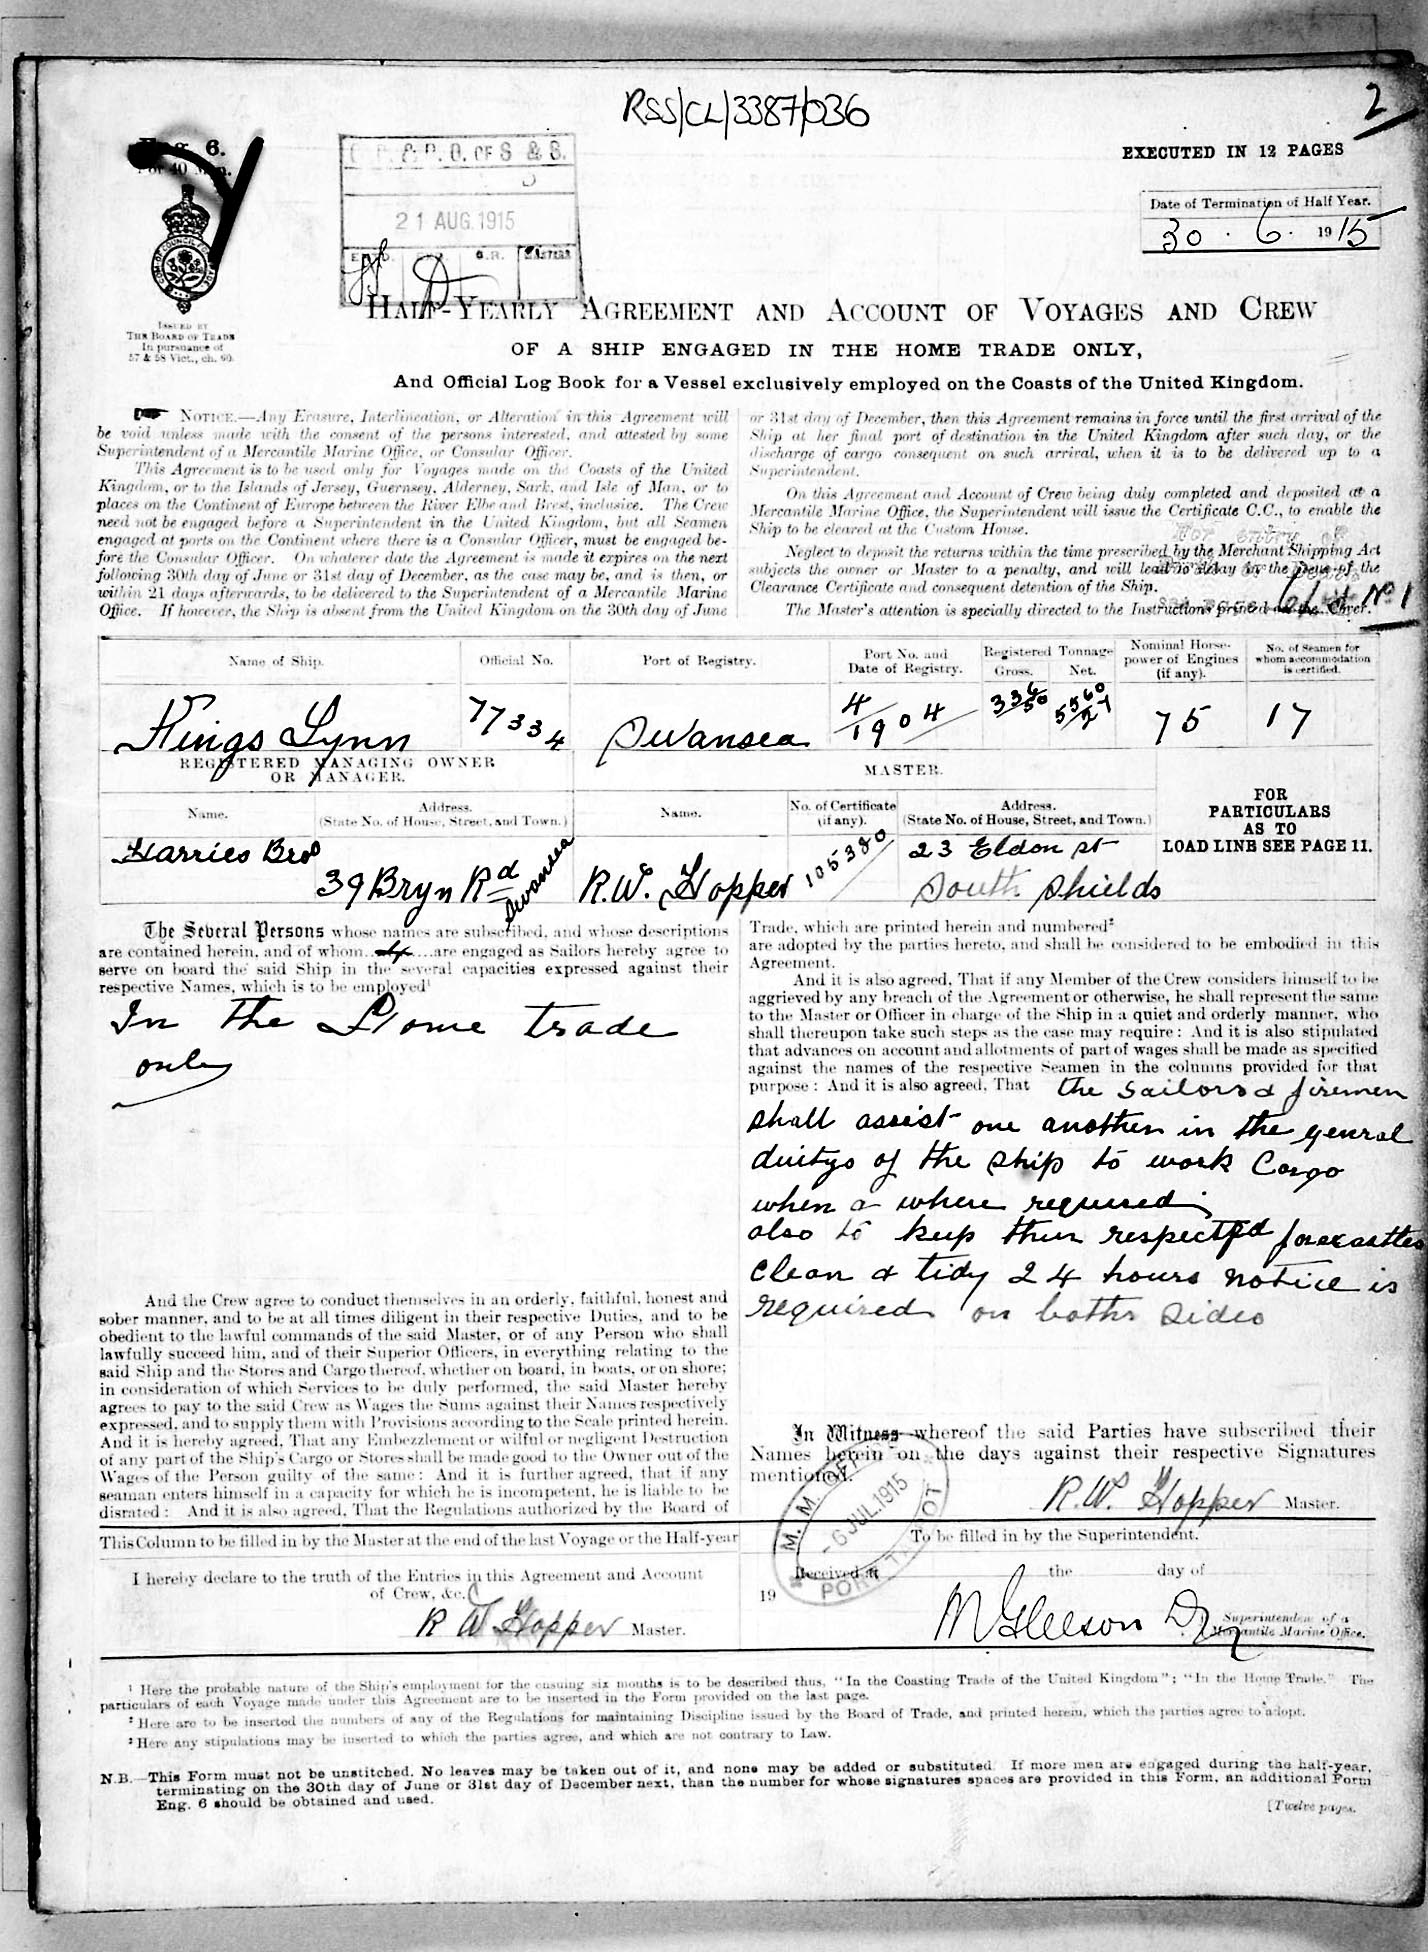 RSS/CL/3387/036
2
Eng. 6.
For 40 Men.
EXECUTED IN 12 PAGES
Date of Termination of Half Year.
30 . 6 . 1915
& P. O. OF S & S.
21 AUG.1915
G.R.
MASTERS
ISSUED BY
THE BOARD OF TRADE
In pursuance of
57 & 58 Vict., ch. 60.
HALF-YEARLY AGREEMENT AND ACCOUNT OF VOYAGES AND CREW
OF A SHIP ENGAGED IN THE HOME TRADE ONLY,
And Official Log Book for a Vessel exclusively employed on the Coasts of the United Kingdom.
NOTICE.—Any Erasure, Interlineation, or Alteration in this Agreement will
be void unless made with the consent of the persons interested, and attested by some
Superintendent of a Mercantile Marine Office, or Consular Officer.
This Agreement is to be used only for Voyages made on the Coasts of the United
Kingdom, or to the Islands of Jersey, Guernsey, Alderney, Sark, and Isle of Man, or to
places on the Continent of Europe between the River Elbe and Brest, inclusive. The Crew
need not be engaged before a Superintendent in the United Kingdom, but all Seamen
engaged at ports on the Continent where there is a Consular Officer, must be engaged be-
fore the Consular Officer. On whatever date the Agreement is made it expires on the next
following 30th day of June or 31st day of December, as the case may be, and is then, or
within 21 days afterwards, to be delivered to the Superintendent of a Mercantile Marine
Office. If however, the Ship is absent from the United Kingdom on the 30th day of June
or 31st day of December, then this Agreement remains in force until the first arrival of the
Ship at her final port of destination in the United Kingdom after such day, or the
discharge of cargo consequent on such arrival, when it is to be delivered up to a
Superintendent.
On this Agreement and Account of Crew being duly completed and deposited at a
Mercantile Marine Office, the Superintendent will issue the Certificate C.C., to enable the
Ship to be cleared at the Custom House.
Neglect to deposit the returns within the time prescribed by the Merchant Shipping Act
subjects the owner or Master to a penalty, and will lead to delay in the issue of the
Clearance Certificate and consequent detention of the Ship.
The Master's attention is specially directed to the Instructions printed on the Cover.
No 1
Name of Ship.
Official No.
Port of Registry.
Port No. and
Date of Registry.
Registered Tonnage
Gross.
Net.
Nominal Horse-
power of Engines
(if any).
No. of Seamen for
whom accommodation
is certified.
Kings Lynn
77334
Swansea
4/1904
75
17
REGISTERED MANAGING OWNER
OR MANAGER.
MASTER.
Name.
Address.
(State No. of House, Street, and Town.)
Name.
No. of Certificate
(if any).
Address.
(State No. of House, Street, and Town.)
FOR
PARTICULARS
AS TO
LOAD LINE SEE PAGE 11.
Harries Bros
39 Bryn Rd
Swansea
R.W. Hopper
105380
23 Eldon St
South Shields
The Several Persons whose names are subscribed, and whose descriptions
are contained herein, and of whom 4 are engaged as Sailors hereby agree to
serve on board the said Ship in the several capacities expressed against their
respective Names, which is to be employed¹
In the Home trade
only
And the Crew agree to conduct themselves in an orderly, faithful, honest and
sober manner, and to be at all times diligent in their respective Duties, and to be
obedient to the lawful commands of the said Master, or of any Person who shall
lawfully succeed him, and of their Superior Officers, in everything relating to the
said Ship and the Stores and Cargo thereof, whether on board, in boats, or on shore;
in consideration of which Services to be duly performed, the said Master hereby
agrees to pay to the said Crew as Wages the Sums against their Names respectively
expressed, and to supply them with Provisions according to the Scale printed herein.
And it is hereby agreed, That any Embezzlement or wilful or negligent Destruction
of any part of the Ship's Cargo or Stores shall be made good to the Owner out of the
Wages of the Person guilty of the same: And it is further agreed, that if any
seaman enters himself in a capacity for which he is incompetent, he is liable to be
disrated: And it is also agreed, That the Regulations authorized by the Board of
Trade, which are printed herein and numbered²
are adopted by the parties hereto, and shall be considered to be embodied in this
Agreement.
And it is also agreed, That if any Member of the Crew considers himself to be
aggrieved by any breach of the Agreement or otherwise, he shall represent the same
to the Master or Officer in charge of the Ship in a quiet and orderly manner, who
shall thereupon take such steps as the case may require: And it is also stipulated
that advances on account and allotments of part of wages shall be made as specified
against the names of the respective Seamen in the columns provided for that
purpose: And it is also agreed, That the sailors & firemen
shall assist one another in the genral
duitys of the ship to work Cargo
when & where required.
also to keep their forecastles
clean & tidy 24 hours notice is
required on boths sides
In Witness whereof the said Parties have subscribed their
Names herein on the days against their respective Signatures
mentioned.
R.W. Hopper Master.
M. M. O.
-6 JUL.1915
PORT TALBOT
This Column to be filled in by the Master at the end of the last Voyage or the Half-year
I hereby declare to the truth of the Entries in this Agreement and Account
of Crew, &c.
R W Hopper Master.
To be filled in by the Superintendent.
Received at the day of
19
M Gleeson Dy
Superintendent of a
Mercantile Marine Office.
¹ Here the probable nature of the Ship's employment for the ensuing six months is to be described thus, "In the Coasting Trade of the United Kingdom"; "In the Home Trade." The
particulars of each Voyage made under this Agreement are to be inserted in the Form provided on the last page.
² Here are to be inserted the numbers of any of the Regulations for maintaining Discipline issued by the Board of Trade, and printed herein, which the parties agree to adopt.
³ Here any stipulations may be inserted to which the parties agree, and which are not contrary to Law.
N.B.—This Form must not be unstitched. No leaves may be taken out of it, and none may be added or substituted. If more men are engaged during the half-year,
terminating on the 30th day of June or 31st day of December next, than the number for whose signatures spaces are provided in this Form, an additional Form
Eng. 6 should be obtained and used.
[Twelve pages.